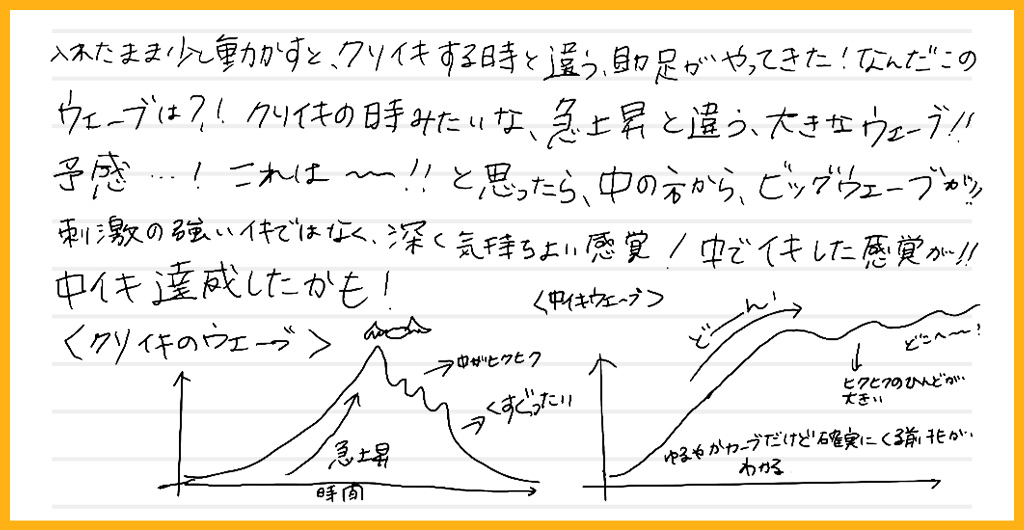 入れたまま少し動かすと、クリイキする時と違う、助走がやってきた！なんだこの
ウェーブは？！ クリイキの時みたいな、急上昇と違う、大きなウェーブ!!
予感…！ これは〜〜!! と思ったら、中の方から、ビッグウェーブが!!
刺激の強いイキではなく、深く気持ちよい感覚！中でイキした感覚が!!
中イキ達成したかも！
〈クリイキのウェーブ〉
中がヒクヒク
くすぐったい
急上昇
時間
〈中イキウェーブ〉
どーん！
どこへ〜〜！
ヒクヒクのひんどが
大きい
ゆるやかカーブだけど確実にくる前兆が
わかる